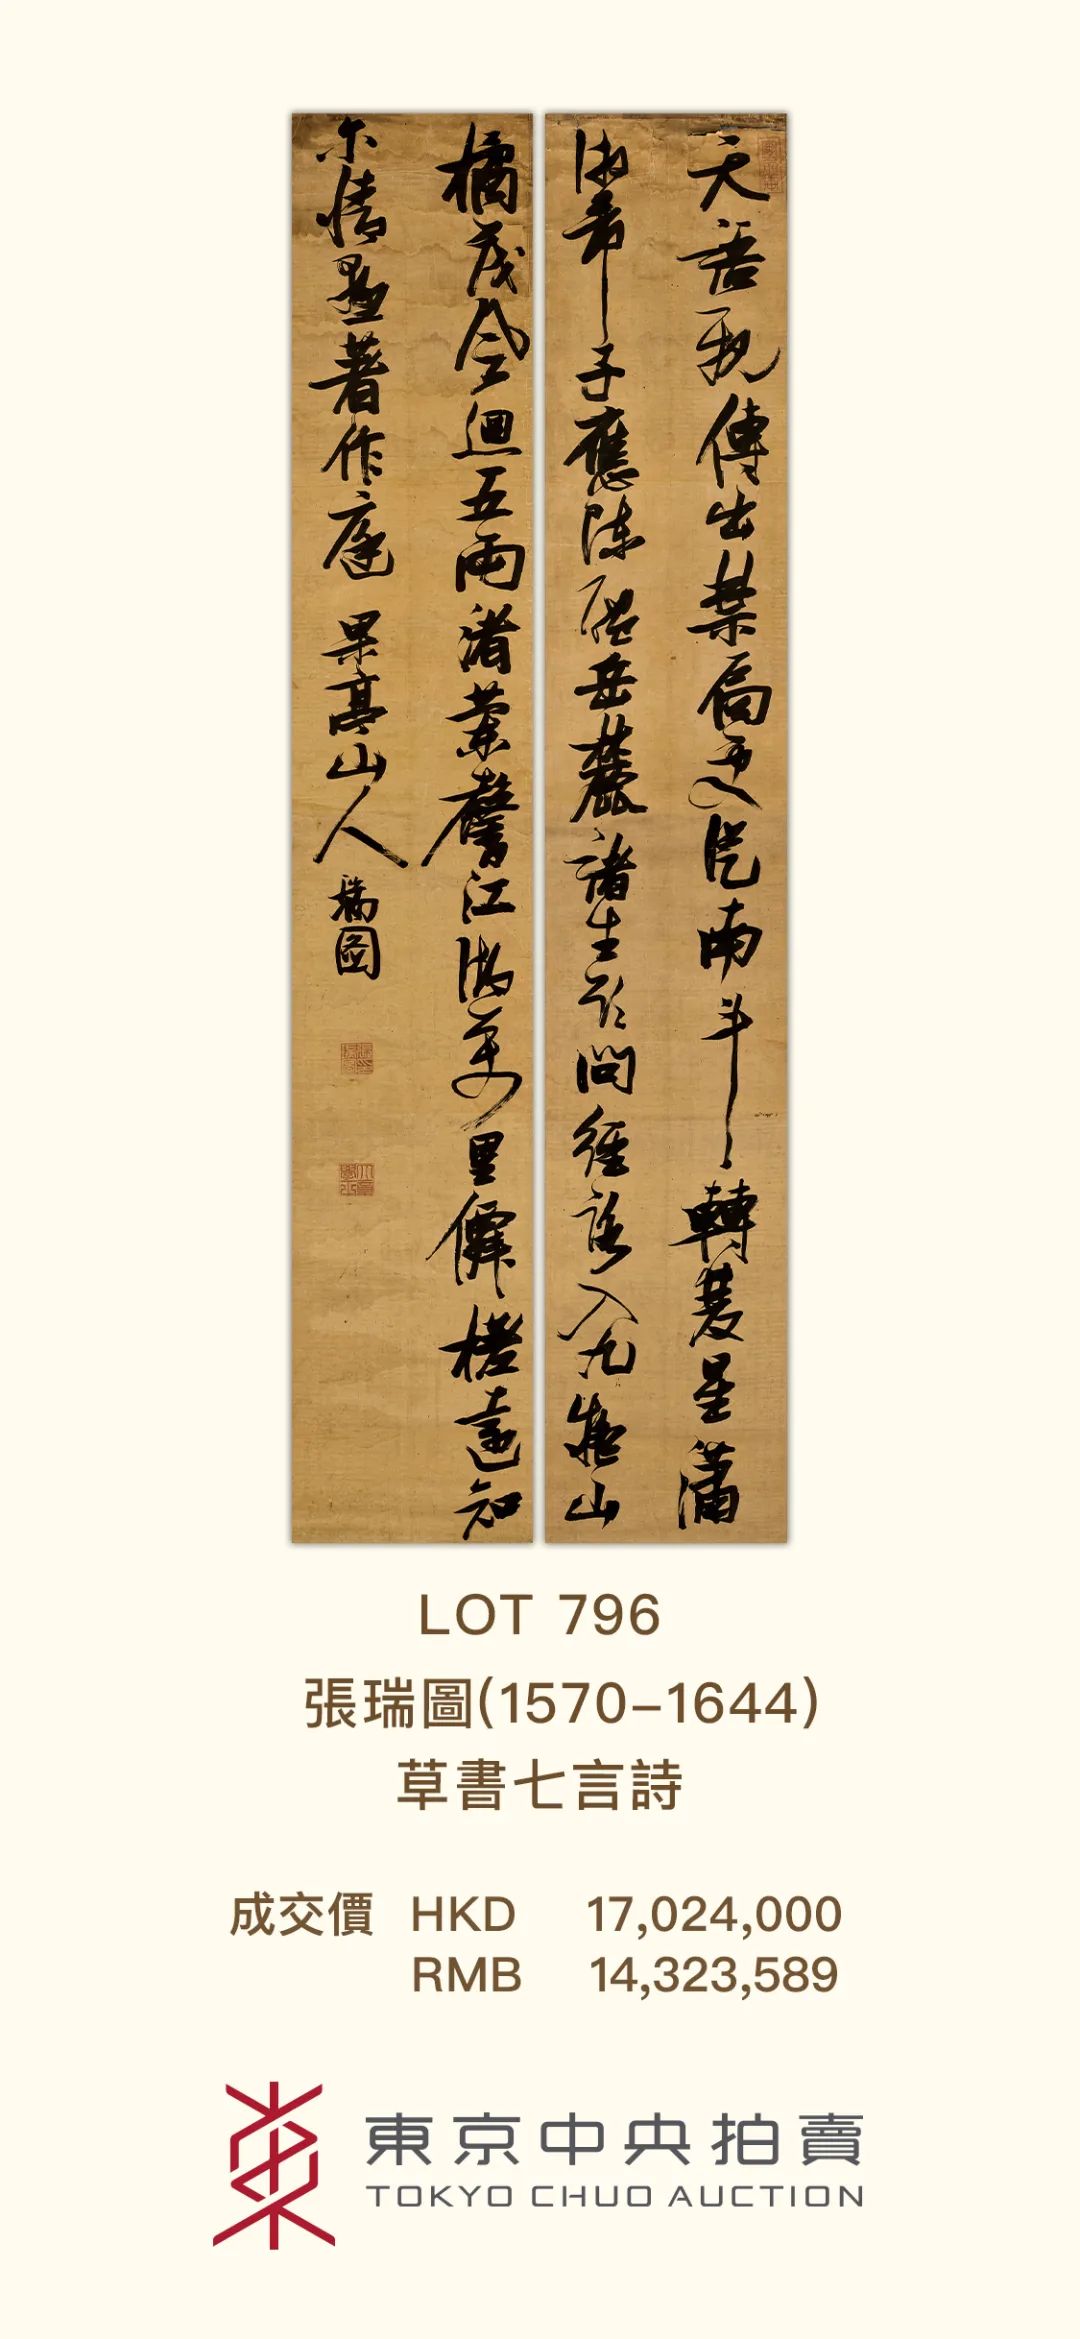 天語親傳出禁扃更從南斗轉星瀟
湘帝子應陳瑟岳麓諸生問經路入九疑山
橘茂迴五兩渚蘭馨江萬里僊槎遠知
尔情著作庭 果亭山人 瑞圖
LOT 796
張瑞圖(1570–1644)
草書七言詩
成交價 HKD 17,024,000
RMB 14,323,589
東京中央拍賣
TOKYO CHUO AUCTION